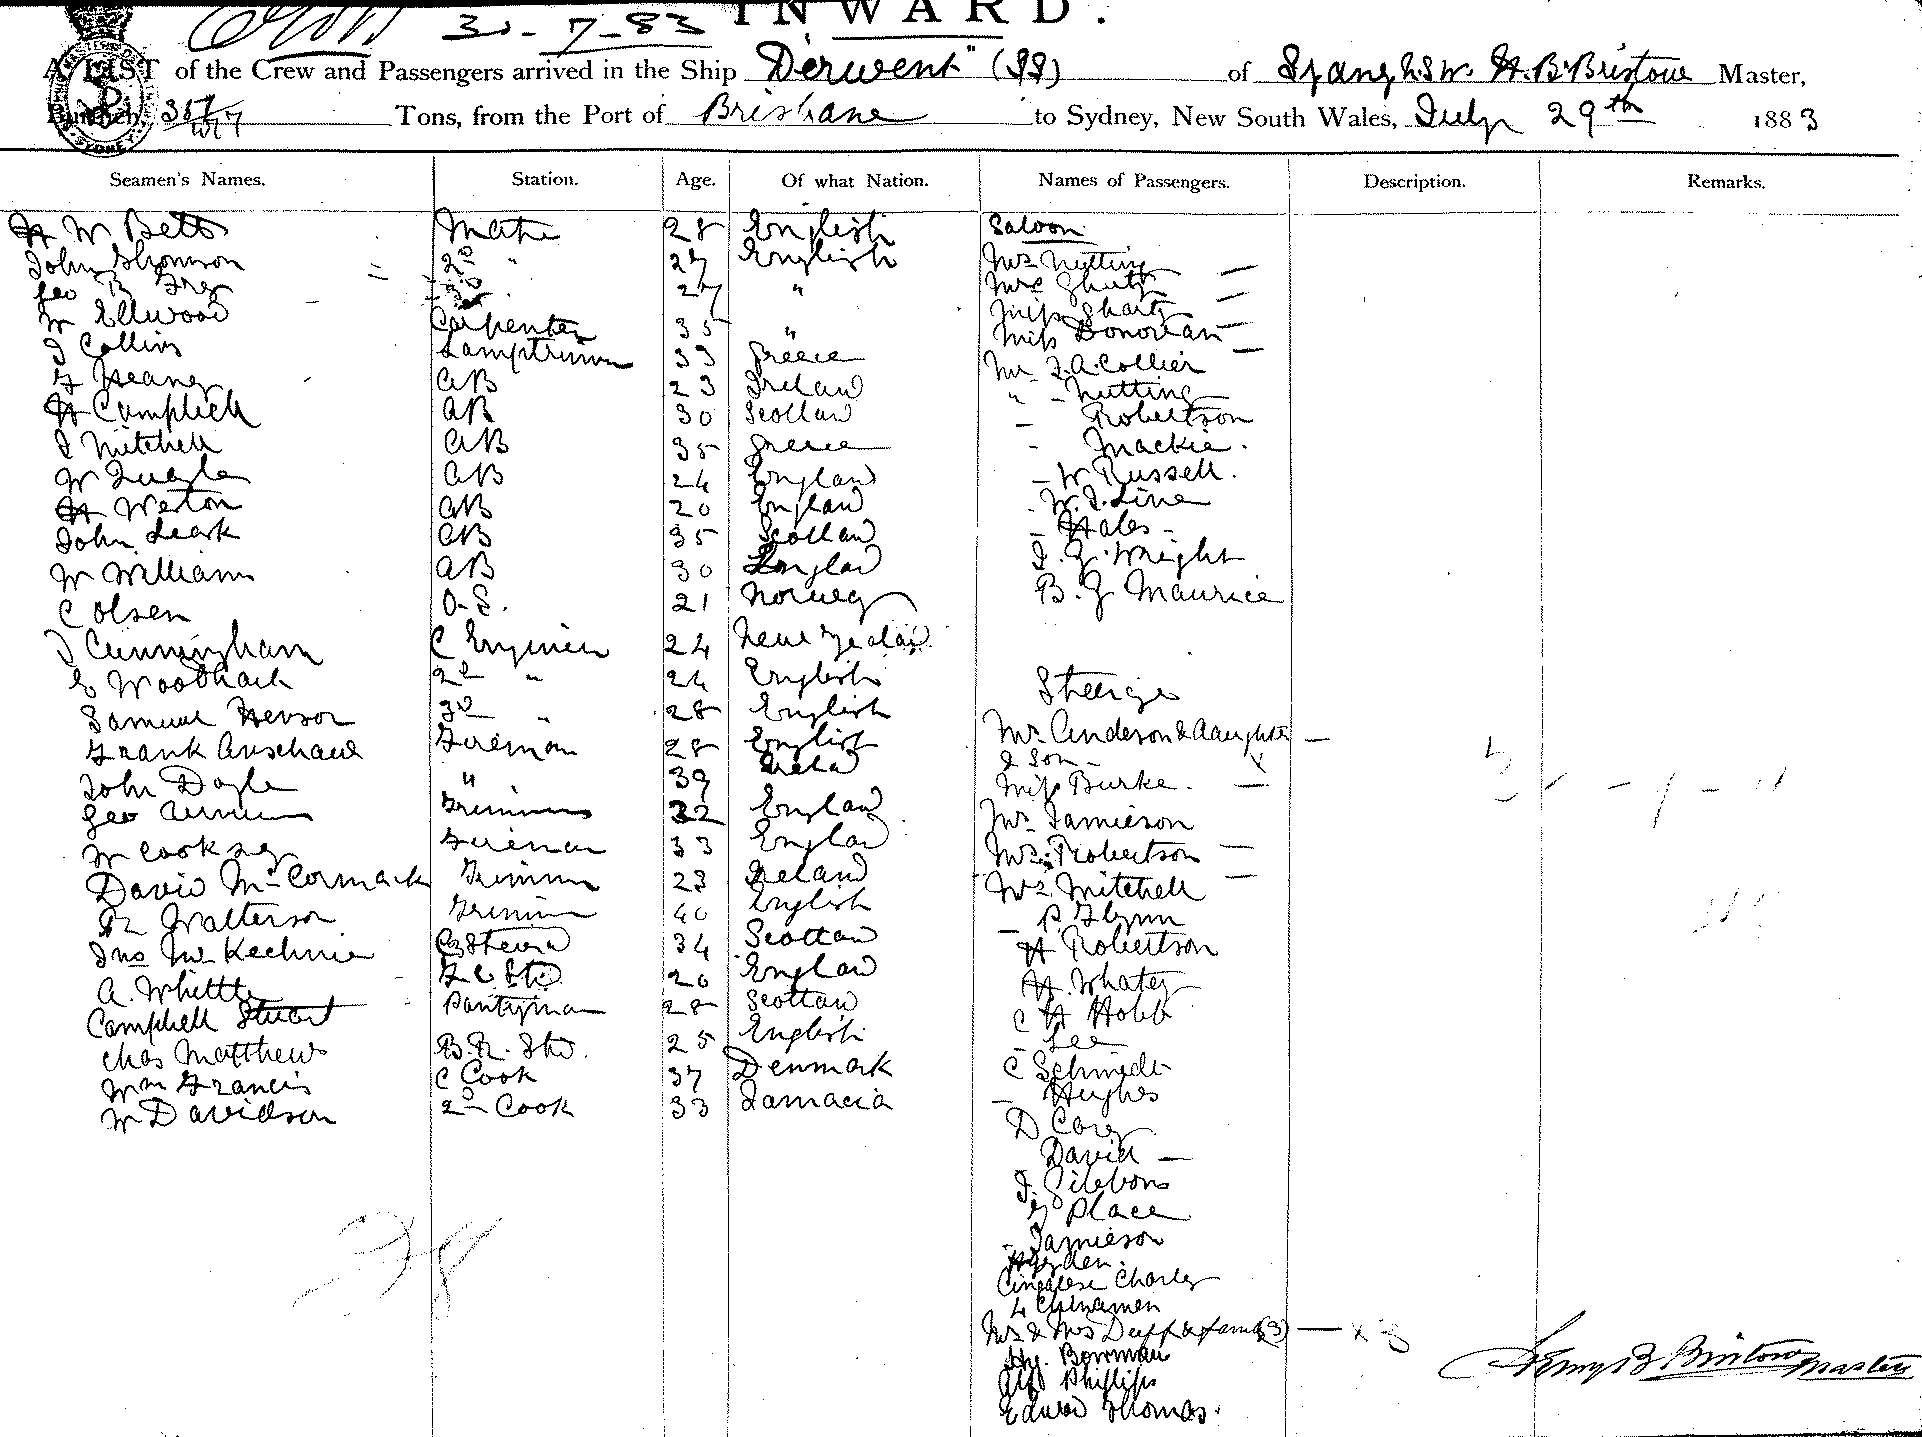 30-7-83 INWARD.
A LIST of the Crew and Passengers arrived in the Ship "Derwent" (SS) of H. B. Bristow Master,
Burthen 357 Tons, from the Port of Brisbane to Sydney, New South Wales, July 29th 1883
Seamen's Names. Station. Age. Of what Nation. Names of Passengers. Description. Remarks.
H W Betts Mate 28 English Saloon
John Thomson 2d " 27 English Mrs Nutting —
Geo B 3d 27 " Mrs Shutz —
W Ellwood Carpenter 35 " Miss Shutz —
J Collins Lamptrimmer 33 Greece Miss Donovan —
Heaney AB 23 Ireland Mr F. A. Collier
H Campbell AB 30 Scotland " - Nutting
J Mitchell AB 35 Greece - Robertson
W Quayle AB 24 England - Mackie.
H Weston AB 20 England - W Russell.
John Leask AB 35 Scotland - W. J. Line
W William AB 30 England - Hales -
C Olsen O.S. 21 Norway J. G. Wright
J Cunningham C Engineer 24 New Zealand B. G Maurice
G Woodhack 2d " 24 English Steerage
Samuel Henson 3d " 28 English Mr Anderson & daughter —
Frank Fireman 28 English & Son -
John Doyle " 39 Ireland Miss Burke. —
Geo Trimmer 32 England Mr Jamieson
W Cooksey Fireman 33 England Mrs Robertson —
David McCormack Trimmer 23 Ireland Mrs Mitchell —
Watterson Trimmer 40 English - P. Flynn
Jno McKechnie C Steward 34 Scotland H Robertson
A. Whittle F C Std. 20 England H. Whatey
Campbell Stuart Pantryman 28 Scotland C H Hobb
Chas Matthews B.R. Std. 25 English - Lee
Wm Francis C Cook 37 Denmark C Schmidt
W Davidson 2d Cook 33 Jamacia - Hughes
D Carey
David —
J. Gibbons
G Place
- Jamieson
Hayden.
Cingalese Charley
4 Chinamen
Mr & Mrs Duff & fam (3) — x 3
Hy. Bowman
Alfd Phillips
Edward Thomas.
28
Henry B Bristow Master